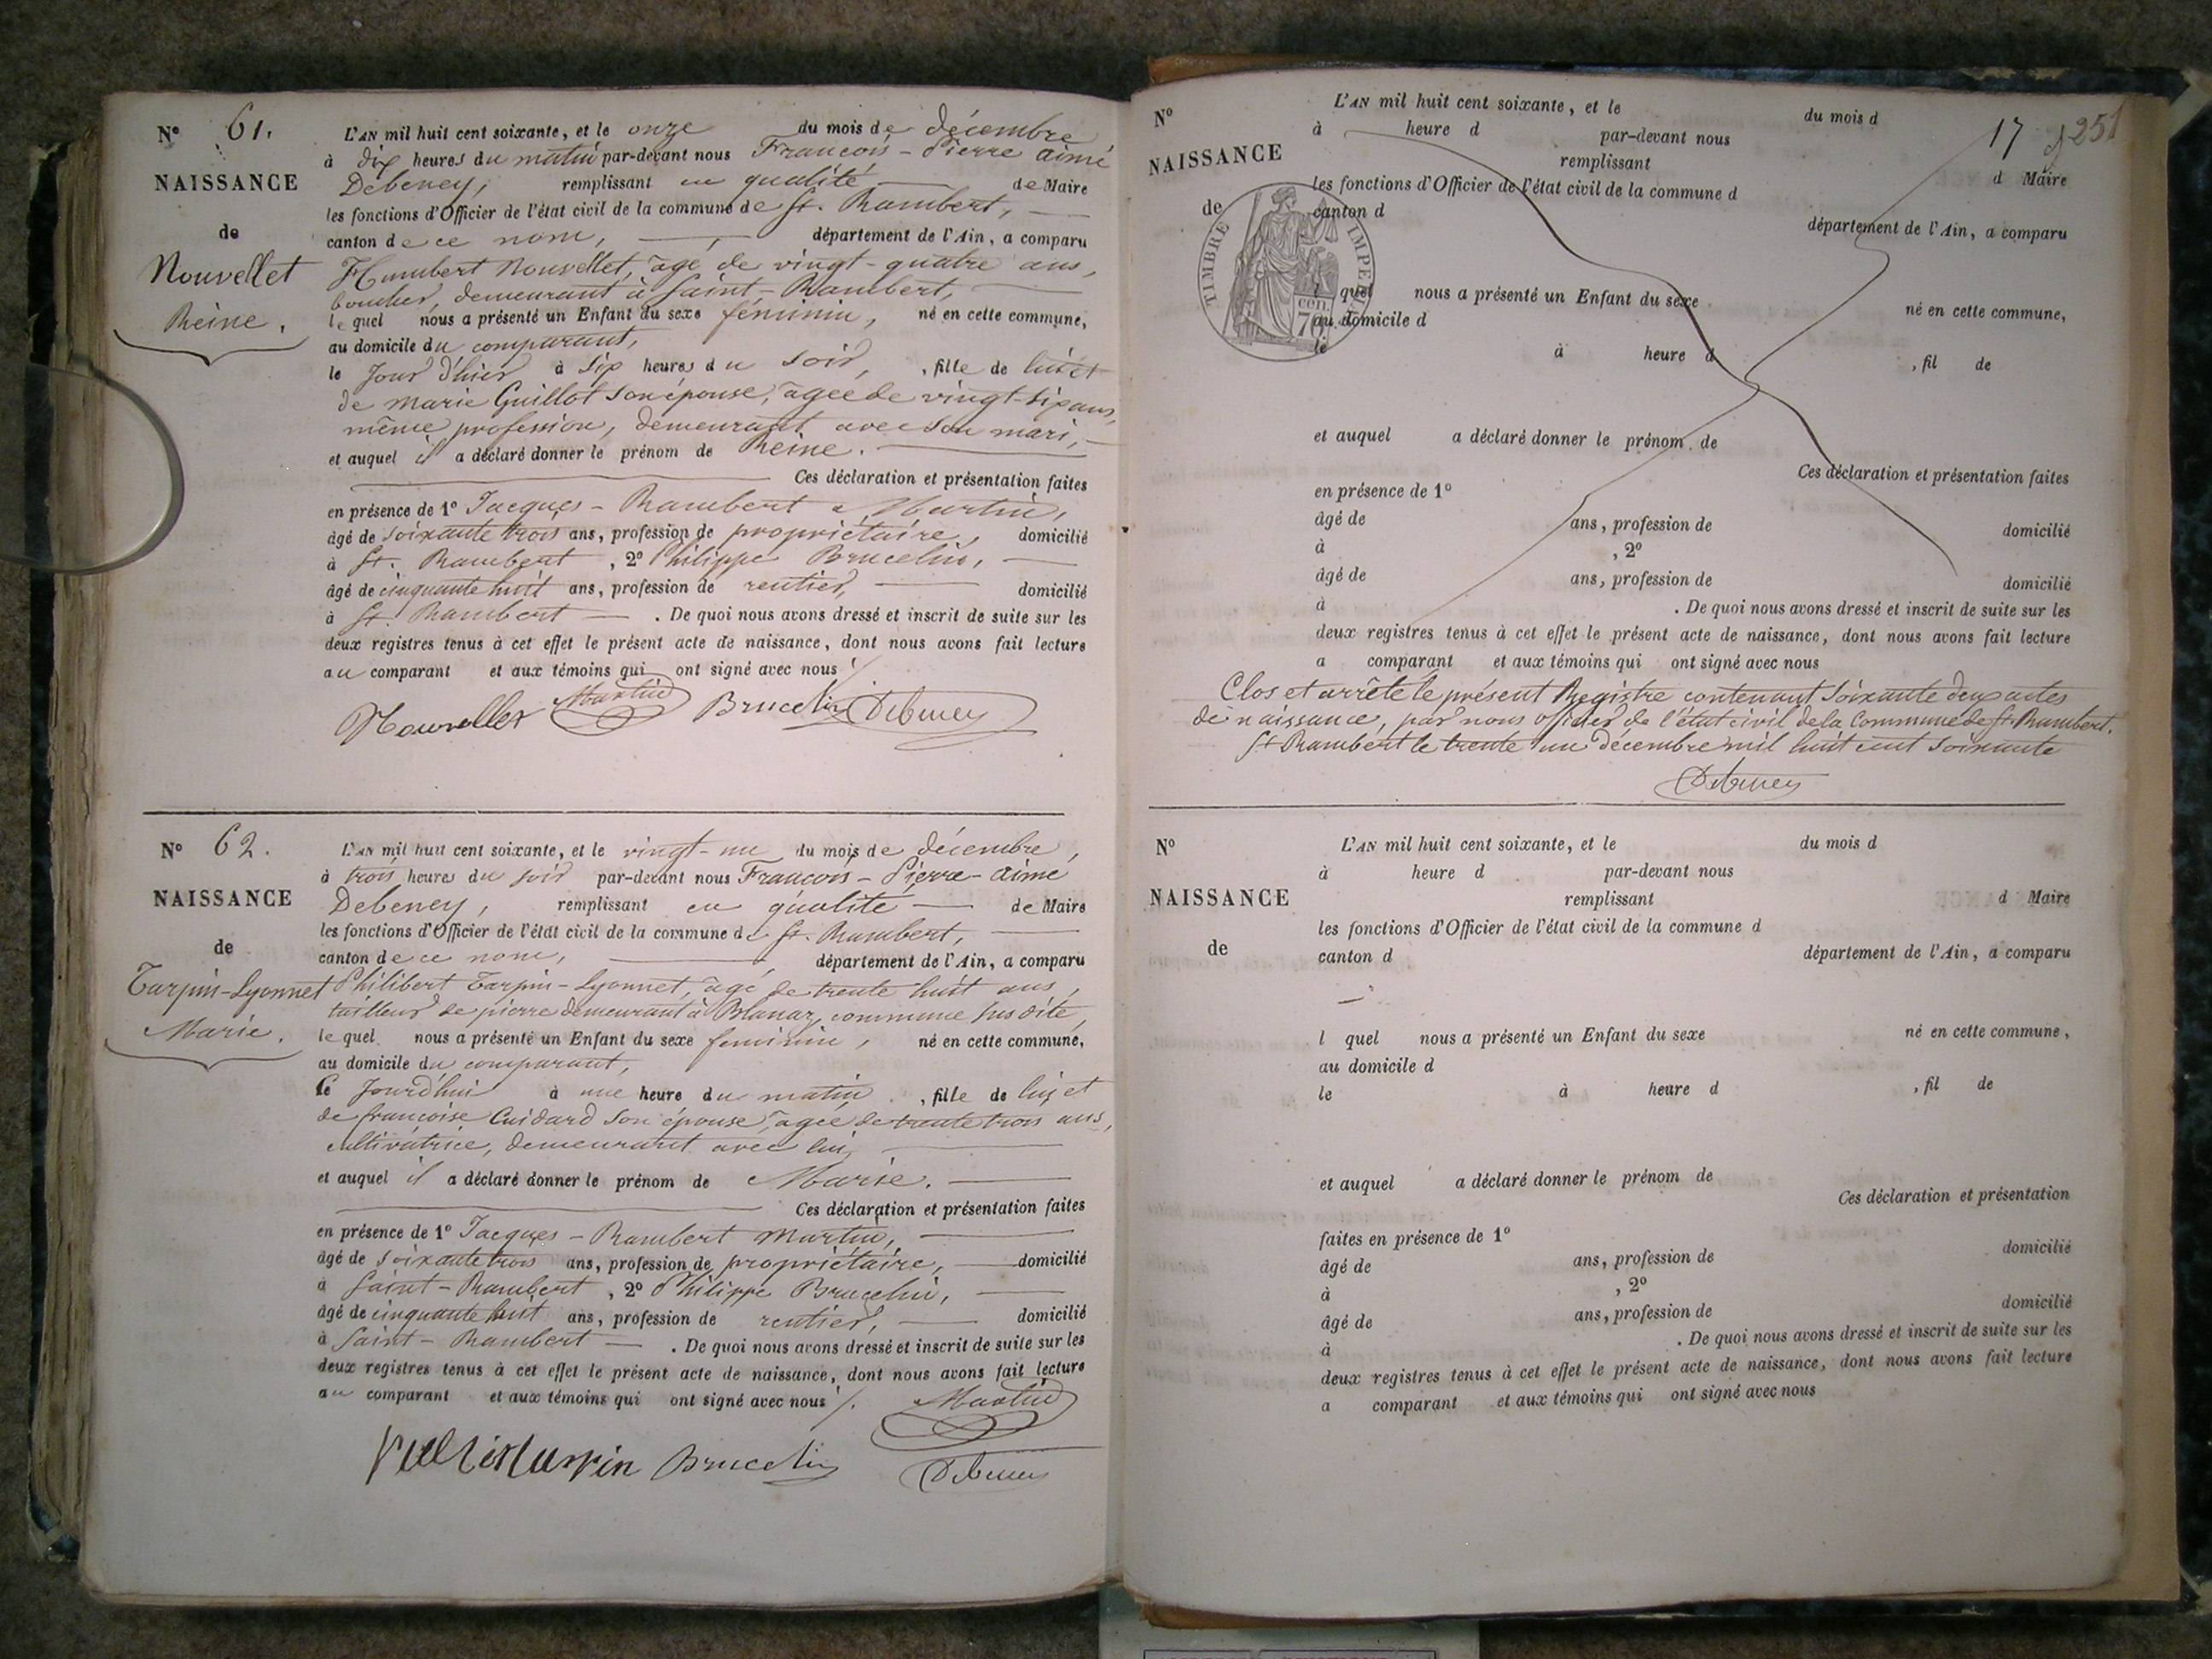 N° 61.
NAISSANCE
de
Nouvellet
Reine.
L'AN mil huit cent soixante, et le onze du mois de décembre
à dix heures du matin par-devant nous François-Pierre aimé
Debeney, remplissant en qualité de Maire
les fonctions d'Officier de l'état civil de la commune de St. Rambert,
canton de ce nom, département de l'Ain, a comparu
Humbert Nouvellet, âgé de vingt-quatre ans,
boucher, demeurant à Saint-Rambert,
lequel nous a présenté un Enfant du sexe féminin, né en cette commune,
au domicile du comparant,
le jour d'hier à six heures du soir, fille de lui et
de marie Guillot son épouse, âgée de vingt-six ans,
même profession, demeurant avec son mari,
et auquel il a déclaré donner le prénom de Reine.
Ces déclaration et présentation faites
en présence de 1° Jacques-Rambert Martin,
âgé de soixante trois ans, profession de propriétaire, domicilié
à St. Rambert, 2° Philippe Brucelin,
âgé de cinquante huit ans, profession de rentier, domicilié
à St. Rambert. De quoi nous avons dressé et inscrit de suite sur les
deux registres tenus à cet effet le présent acte de naissance, dont nous avons fait lecture
au comparant et aux témoins qui ont signé avec nous
Nouvellet Martin Brucelin Debeney
N° 62.
NAISSANCE
de
Tarpin-Lyonnet
Marie.
L'AN mil huit cent soixante, et le vingt-un du mois de décembre,
à trois heures du soir par-devant nous François-Pierre-aimé
Debeney, remplissant en qualité de Maire
les fonctions d'Officier de l'état civil de la commune de St. Rambert,
canton de ce nom, département de l'Ain, a comparu
Philibert Tarpin-Lyonnet, âgé de trente huit ans,
tailleur de pierre demeurant à Blanaz, commune susdite,
lequel nous a présenté un Enfant du sexe féminin, né en cette commune,
au domicile du comparant,
le jourd'hui à une heure du matin, fille de lui et
de françoise Cuidard son épouse, âgée de trente trois ans,
cultivatrice, demeurant avec lui,
et auquel il a déclaré donner le prénom de Marie.
Ces déclaration et présentation faites
en présence de 1° Jacques-Rambert Martin,
âgé de soixante trois ans, profession de propriétaire, domicilié
à Saint-Rambert, 2° Philippe Brucelin,
âgé de cinquante huit ans, profession de rentier, domicilié
à Saint-Rambert. De quoi nous avons dressé et inscrit de suite sur les
deux registres tenus à cet effet le présent acte de naissance, dont nous avons fait lecture
au comparant et aux témoins qui ont signé avec nous
Martin
Brucelin Debeney
17 251
N°
NAISSANCE
de
TIMBRE IMPERIAL
L'AN mil huit cent soixante, et le du mois d
à heure d par-devant nous
remplissant d Maire
les fonctions d'Officier de l'état civil de la commune d
canton d département de l'Ain, a comparu
l quel nous a présenté un Enfant du sexe né en cette commune,
au domicile d
le à heure d , fil de
et auquel a déclaré donner le prénom de
Ces déclaration et présentation faites
en présence de 1°
âgé de ans, profession de domicilié
à , 2°
âgé de ans, profession de domicilié
à . De quoi nous avons dressé et inscrit de suite sur les
deux registres tenus à cet effet le présent acte de naissance, dont nous avons fait lecture
a comparant et aux témoins qui ont signé avec nous
Clos et arrêté le présent Registre contenant soixante deux actes
de naissance, par nous officier de l'état civil de la Commune de St. Rambert.
St Rambert le trente un décembre mil huit cent soixante
Debeney
N°
NAISSANCE
de
L'AN mil huit cent soixante, et le du mois d
à heure d par-devant nous
remplissant d Maire
les fonctions d'Officier de l'état civil de la commune d
canton d département de l'Ain, a comparu
l quel nous a présenté un Enfant du sexe né en cette commune,
au domicile d
le à heure d , fil de
et auquel a déclaré donner le prénom de
Ces déclaration et présentation
faites en présence de 1°
âgé de ans, profession de domicilié
à , 2°
âgé de ans, profession de domicilié
à . De quoi nous avons dressé et inscrit de suite sur les
deux registres tenus à cet effet le présent acte de naissance, dont nous avons fait lecture
a comparant et aux témoins qui ont signé avec nous